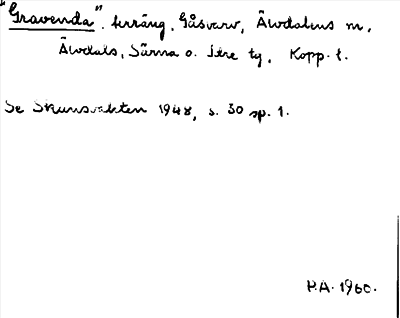 "Gravenda". terräng, Gåsvarv, Älvdalens m,
Älvdals, Särna o. Idre tg, Kopp. l.
Se Skansvakten 1948, s. 30 sp. 1.
P.A. 1960.